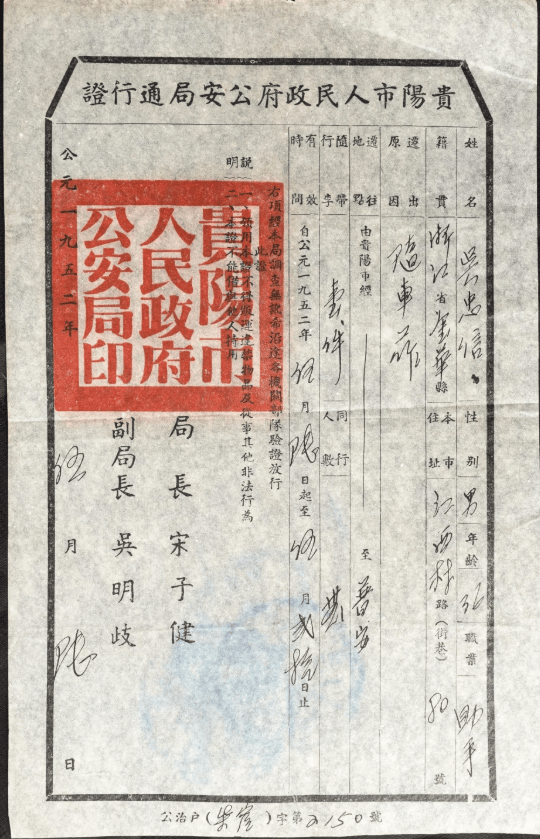 貴陽市人民政府公安局通行證
姓名 吳忠信 性別 男 年齡 職業 助手
籍貫 浙江省金華縣 本市住址 江西村路(街巷) 80 號
遷出原因 隨車
遷往地點 由貴陽市經 至 普安
隨帶行李 壹件 同行人數
有效時間 自公元一九五二年 伍月 陸日起至 伍月 貳拾日止
右項經本局調查無訛希沿途各機關部隊驗證放行
此證
說明
一、領用本證不得販運違禁物品及從事其他非法行為
二、本證不能借與他人持用
局長 宋子健
副局長 吳明歧
公元一九五二年 伍月 陸日
貴陽市
人民政府
公安局印
公治戶( )字第2150號